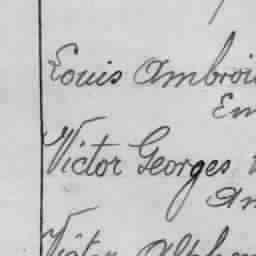 Louis Ambroi
Em
Victor Georges
Am
Victor Alphon